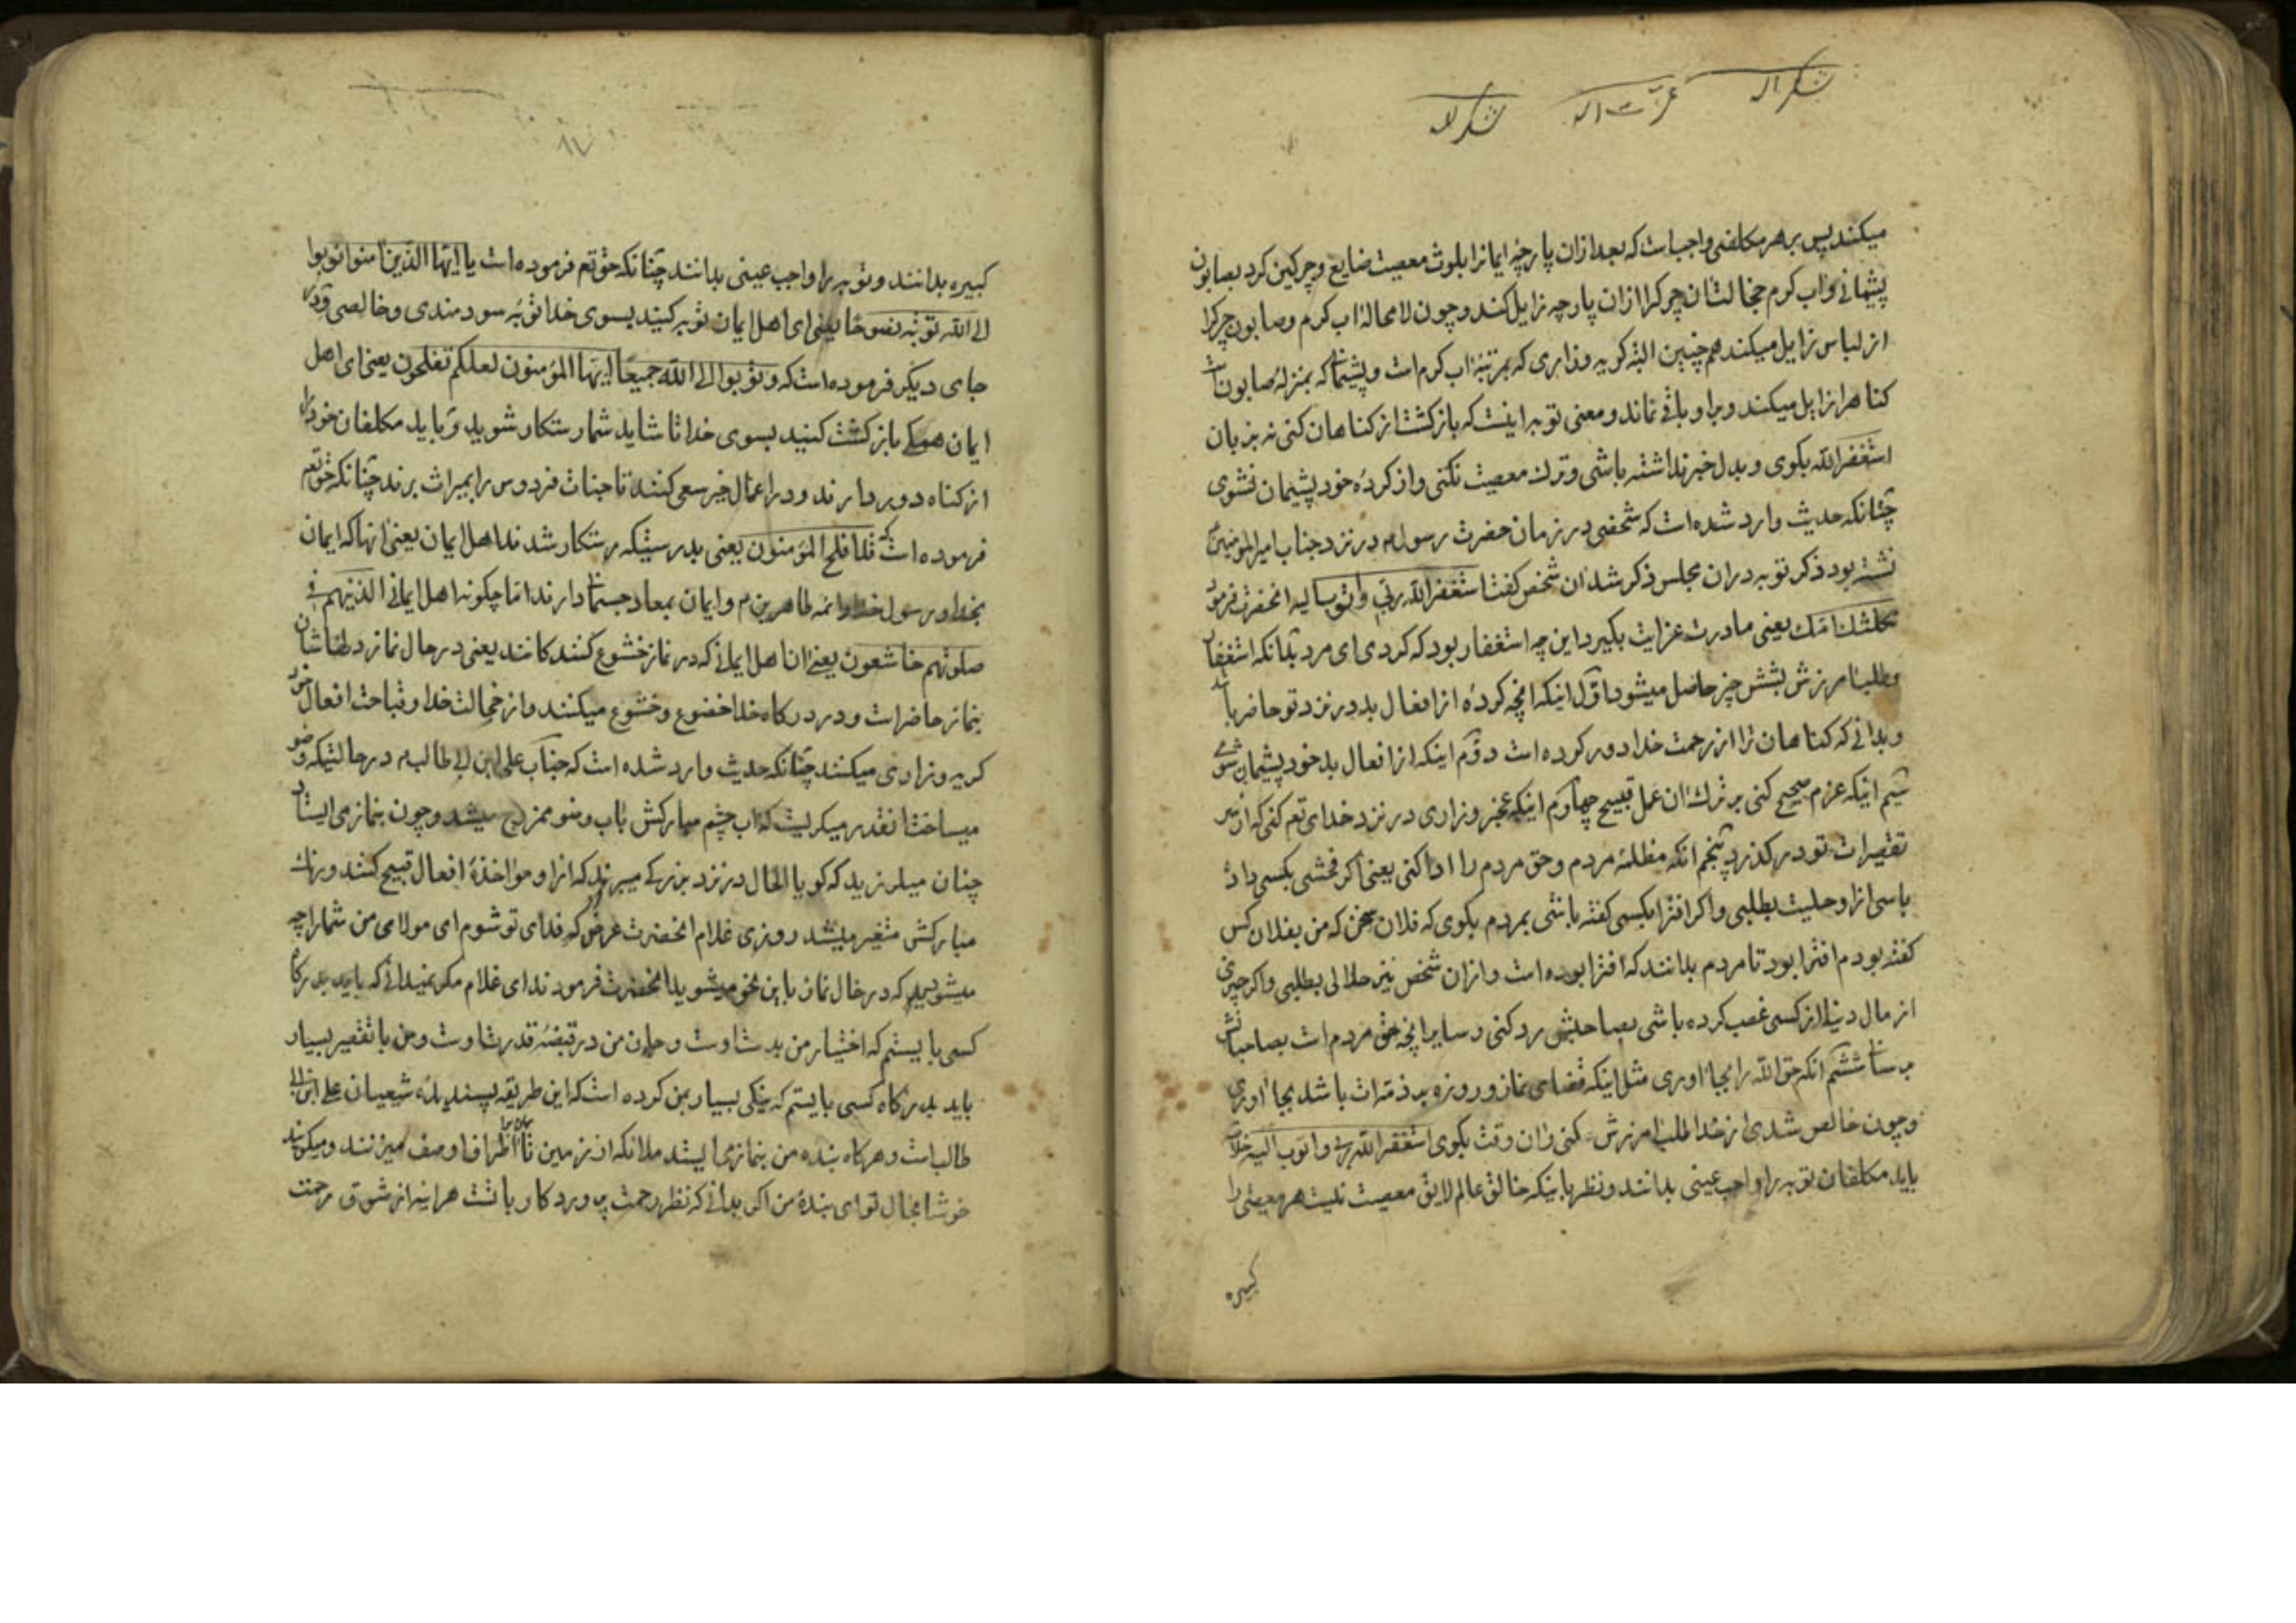 میکند پس بر هر مکلفی واجب است که بعد از ان پارچهٔ ایمانرا بلوث معصیت ضایع و چرکین کرد بصابون
پشیمانی و اب کرم خجالت ان چرکرا از ان پارچه زایل کند و چون لا محاله اب کرم و صابون چرکرا
از لباس زایل میکند همچنین البته کریه و زاری که بمرتبهٔ اب کرم است و پشیمانی که بمنزلهٔ صابون است
کناهرا زایل میکند و برا و باقی نماند و معنی توبه اینست که بازکشت از کناهان کنی نه بزبان
استغفر الله بکوی و بدل خبر نداشته باشی و ترک معصیت نکنی و از کردهٔ خود پشیمان نشوی
چنانکه حدیث وارد شده است که شخصی در زمان حضرت رسول م در نزد جناب امیر المؤمنین
نشسته بود ذکر توبه در ان مجلس ذکر شد ان شخص کفت استغفر الله ربی و اتوب الیه انحضرت فرمود
ثکلتک امک یعنی مادرت عزایت بکیرد این چه استغفار بود که کردی ای مرد بدانکه استغفار
و طلب امرزش بشش چیز حاصل میشود اول اینکه انچه کردهٔ از افعال بد در نزد تو حاضر باشد
و بدانی که کناهان ترا از رحمت خدا دور کرده است دوم اینکه از افعال بد خود پشیمان شوی
سیم اینکه عزم صحیح کنی بر ترک ان عمل قبیح چهارم اینکه عجز و زاری در نزد خدای تعم کنی که از سر
تقصیرات تو در کذرد پنجم انکه مظلمهٔ مردم و حق مردم را ادا کنی یعنی اکر فحشی بکسی داده
باسی از او حلیت بطلبی و اکر افترا بکسی کفته باشی بمردم بکوی که فلان سخن که من بفلان کس
کفته بودم افترا بود تا مردم بدانند که افترا بوده است و از ان شخص نیز حلالی بطلبی و اکر چیزی
از مال دنیا از کسی غصب کرده باشی بصاحبش رد کنی و سایر انچه حق مردم است بصاحبانش
برسانی ششم انکه حق الله را بجا اوری مثل اینکه قضای نماز و روزه بر ذمه ات باشد بجا اوری
و چون خالص شدی از خدا طلب امرزش کنی و ان وقت بکوی استغفر الله ربی و اتوب الیه
باید مکلفان توبه را واجب عینی بدانند و نظر باینکه خالق عالم لایق معصیت نیست هر معصیتی را
کبیره
کبیره بدانند و توبه را واجب عینی بدانند چنانکه حق تعم فرموده است یا ایها الذین امنوا توبوا
الی الله توبة نصوحا یعنی ای اهل ایمان توبه کنید بسوی خدا توبهٔ سودمندی و خالصی و در
جای دیکر فرموده است که و توبوا الی الله جمیعا ایها المؤمنون لعلکم تفلحون یعنی ای اهل
ایمان همکی بازکشت کنید بسوی خدا تا شاید شما رستکار شوید و باید مکلفان خود را
از کناه دور بدارند و در اعمال خیر سعی کنند تا جنات فردوس را بمیراث برند چنانکه حق تعم
فرموده است که قد افلح المؤمنون یعنی بدرستیکه رستکار شدند اهل ایمان یعنی انها که ایمان
بخدا و رسول خدا و ائمه طاهرین م و ایمان بمعاد جسمانی دارند اما چکونه اهل ایمانی الذین هم فی
صلوتهم خاشعون یعنی ان اهل ایمانی که در نماز خشوع کنندکانند یعنی در حال نماز دلهاشان
بنماز حاضر است و در درکاه خدا خضوع و خشوع میکنند و از خجالت خدا و قباحت افعال خود
کریه و زاری میکنند چنانکه حدیث وارد شده است که جناب علی ابن ابی طالب م در حالتیکه وضو
میساخت انقدر میکریست که اب چشم مبارکش باب وضو ممزوج میشد و چون بنماز می ایستاد
چنان میلرزید که کویا الحال در نزد بزرکی میبرند که از او مواخذهٔ افعال قبیح کنند و رنک
مبارکش متغیر میشد روزی غلام انحضرت عرض کرد که فدای تو شوم ای مولای من شما را چه
میشود که در حال نماز باین نحو میشوید انحضرت فرمودند ای غلام مکر نمیدانی که باید بدرکاه
کسی بایستم که اختیار من بدست اوست و جان من در قبضهٔ قدرت اوست و من با تقصیر بسیار
باید بدرکاه کسی بایستم که نیکی بسیار بمن کرده است که این طریقه پسندیدهٔ شعیبان علی ابن ابی
طالب است و هرکاه بنده من بنماز می ایستد ملائکه از زمین تا اسمان بر اطراف او صف میزنند و میکویند
خوشا بحال تو ای بندهٔ من اکر بدانی که نظر رحمت پروردکار با تست هر اینه از شوق رحمت